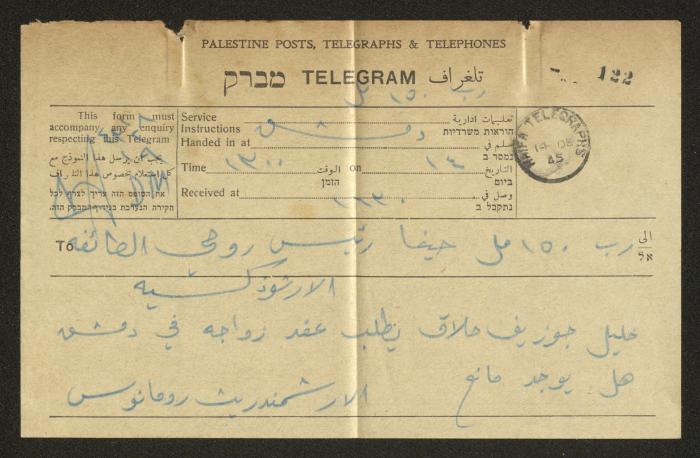 PALESTINE POSTS, TELEGRAPHS & TELEPHONES
מברק TELEGRAM تلغراف
122
رب ١٥٠ مل
This form must
accompany any enquiry
respecting this Telegram
يجب أن يرسل هذا النموذج مع
כל
את הטופס הזה צריך לצרף לכל
חקירה הנערכת בענין המברק הזה.
Service
Instructions
تعليمات ادارية
הוראות משרדיות
Handed in at دمشق سلم في
נמסר ב
Time ١٣٠٠ الوقت on ١٤ التاريخ
הזמן ביום
Received at ١٦٣٠ وصل في
נתקבל ב
HAIFA TELEGRAPHS
45
To رب ١٥٠ مل حيفا رئيس روحي الطائفه الى
אל
الارثوذكسيه
خليل جوزيف حلاق يطلب عقد زواجه في دمشق
هل يوجد مانع
الارشمندريت رومانوس